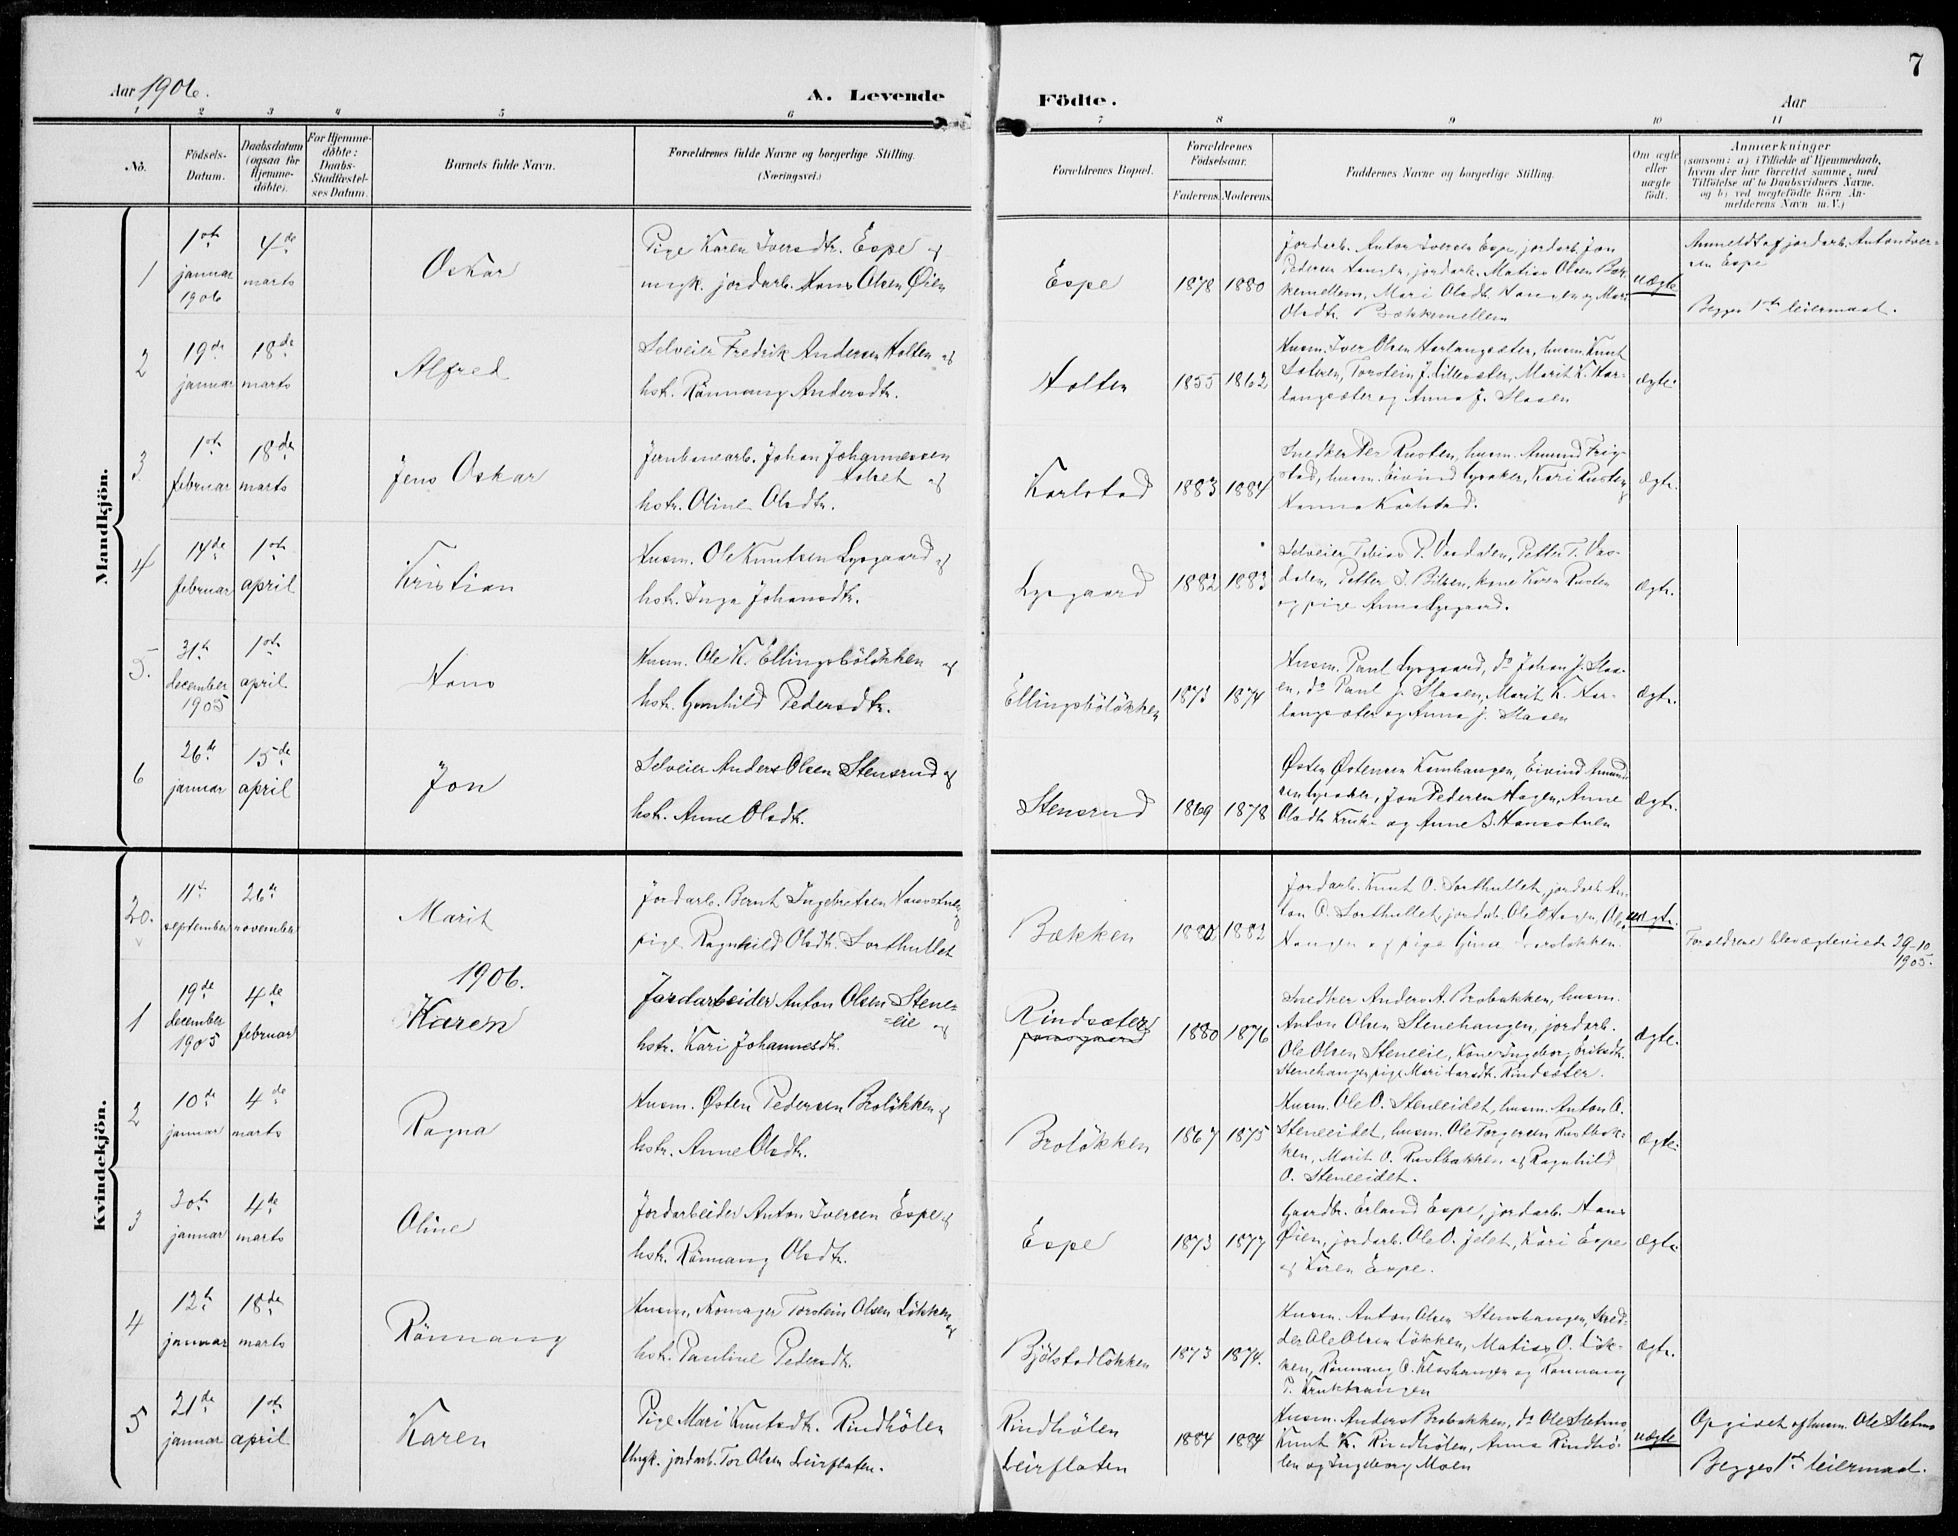 7
Aar 1906.
A. Levende Födte.
Aar
1 2 3 4 5 6 7 8 9 10 11
No.
Födsels-Datum.
Daabsdatum (ogsaa for Hjemmedöbte).
For Hjemmedöbte: Daabs-Stadfæstelses Datum.
Barnets fulde Navn.
Forældrenes fulde Navne og borgerlige Stilling. (Næringsvei.)
Forældrenes Bopæl.
Forældrenes Födselsaar.
Faderens. Moderens.
Faddernes Navne og borgerlige Stilling.
Om ægte eller uægte födt.
Anmærkninger
(saasom: a) i Tilfælde af Hjemmedaab, hvem der har forrettet samme, med Tilföielse af to Daabsvidners Navne, og b) ved uægtefödte Börn Anmelderens Navn m. V.)
Mandkjön.
1
1ste januar 1906
4de marts
Oskar
Pige Karen Iversdtr. Espe og
ungk. jordarb. Hans Olsen Øien
Espe
1878 1880
jordarb. Anton Iversen Espe, jordarb. Jon
Pedersen Haugen, jordarb. Matias Olsen Bæk-
kemellem, Mari Olsdtr. Haugen og Mari
Olsdtr. Bækkemellem
uægte
Anmeldt af jordarb. Anton Iver-
sen Espe
Begges 1ste leiermaal.
2
19de januar
18de marts
Alfred
Selveier Fredrik Andersen Holten og
hstr. Rönnaug Andersdtr.
Holten
1855 1862
Husm. Iver Olsen Harlangsæter, husm. Knut
Torstein J. Lillesæter, Marit K. Har-
langsæter og Anna J. Slaaen
ægte.
3
1ste februar
18de marts
Jens Oskar
Jernbanearb. Johan Johannessen
Holset og
hstr. Oline Olsdtr.
Karlstad
1883 1884
Snedker Per Rusten, husm. Amund Frig-
stad, husm. Eivind Lysaker, Kari Rusten og
Hanna Karlstad.
ægte.
4
14de februar
1ste april
Kristian
Husm. Ole Knutsen Lysgaard og
hstr. Inga Johansdtr.
Lysgaard
1882 1883
Selveier Tobias P. Vasdalen, Petter T. Vas-
dalen, Petter J. Bilsen, kone Karen Rusten
og pige Anna Lysgaard.
ægte.
5.
31te december 1905
1ste april
Hans
Husm. Ole K. Ellingsbölökken og
hstr. Gunhild Pedersdtr.
Ellingsbölökken
1873 1874
Husm. Paul Lysgaard, do Johan J. Slaa-
en, do Paul J. Slaaen, Marit K. Har-
langsæter og Anna J. Slaaen
ægte.
6
26de januar
15de april
Jon
Selveier Anders Olsen Stensrud og
hstr. Anne Olsdtr.
Stensrud
1869 1878
Østen Østensen Kamhaugen, Eivind Amund-
sen Lysaker, Jon Pedersen Hagen, Anne
Olsdtr. Kruke og Anne S. Hansstuen
ægte.
Kvindekjön.
20.
11te september
26de november
Marit
Jordarb. Bernt Ingebretsen Hansstuen og
pige Ragnhild Olsdtr. Sorthullet
Bækken
1880 1883
Jordarb. Knut O. Sorthullet, jordarb. An-
ton O. Sorthullet, jordarb. Ole O. Hagen, Ole
Haugen og pige Gina
uægte.
Forældrene blev ægteviede 29-10
1905.
1906.
1
19de december 1905
4de februar
Karen
Jordarbeider Anton Olsen Stene-
eie og
hstr. Kari Johannesdtr.
Rindsæter
1880 1876
Snedker Anders A. Brobakken, husm.
Anton Olsen Stenehaugen, jordarb.
Ole Olsen Steneeie, Kone Ingeborg Eriksdtr.
Stenehaugen, pige Mari Larsdtr. Rindsæter.
ægte.
2
10de januar
4de marts
Ragna
Husm. Østen Pedersen Brolökken og
hstr. Anne Olsdtr.
Brolökken
1867 1875
Husm. Ole O. Steneeidet, husm. Anton O.
Steneeidet, husm. Ole Torgersen Rustbak-
ken, Marit O. Rustbakken og Ragnhild
O. Steneeidet.
ægte.
3
30te januar
4de marts
Oline
Jordarbeider Anton Iversen Espe og
hstr. Rönnaug Olsdtr.
Espe
1873 1877
Gaardbr. Erland Espe, jordarb. Hans
Øien, jordarb. Ole O. Jelet, Kari Espe
og Karen Espe.
ægte.
4
12te januar
18de marts
Rönnaug
Husm. Skomager Torstein Olsen Lökken og
hstr. Pauline Pedersdtr.
Bjölstadlökken
1873 1874.
Husm. Anton Olsen Stenehaugen, Skræd-
der Ole Olsen Lökken, Matias O. Lök-
ken, Rönnaug O. Kleshaugen og Rönnaug
P. Krukhaugen
ægte.
5
21de januar
1ste april
Karen
Pige Mari Knutsdtr. Rindhölen
Ungk. jordarb. Tor Olsen Leirflaten.
Rindhölen
Leirflaten
1884 1884
Husm. Anders Brobakken, do Ole Sletmo,
Knut K. Rindhölen, Anna Rindhö-
len og Ingeborg Moen
uægte
Opgivet af husm. Ole Sletmo
Begges 1ste leiermaal.